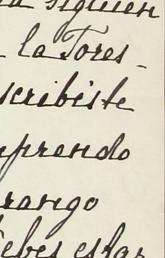 siguen
la Tores-
scribiste
mprendo
rango
debes estar